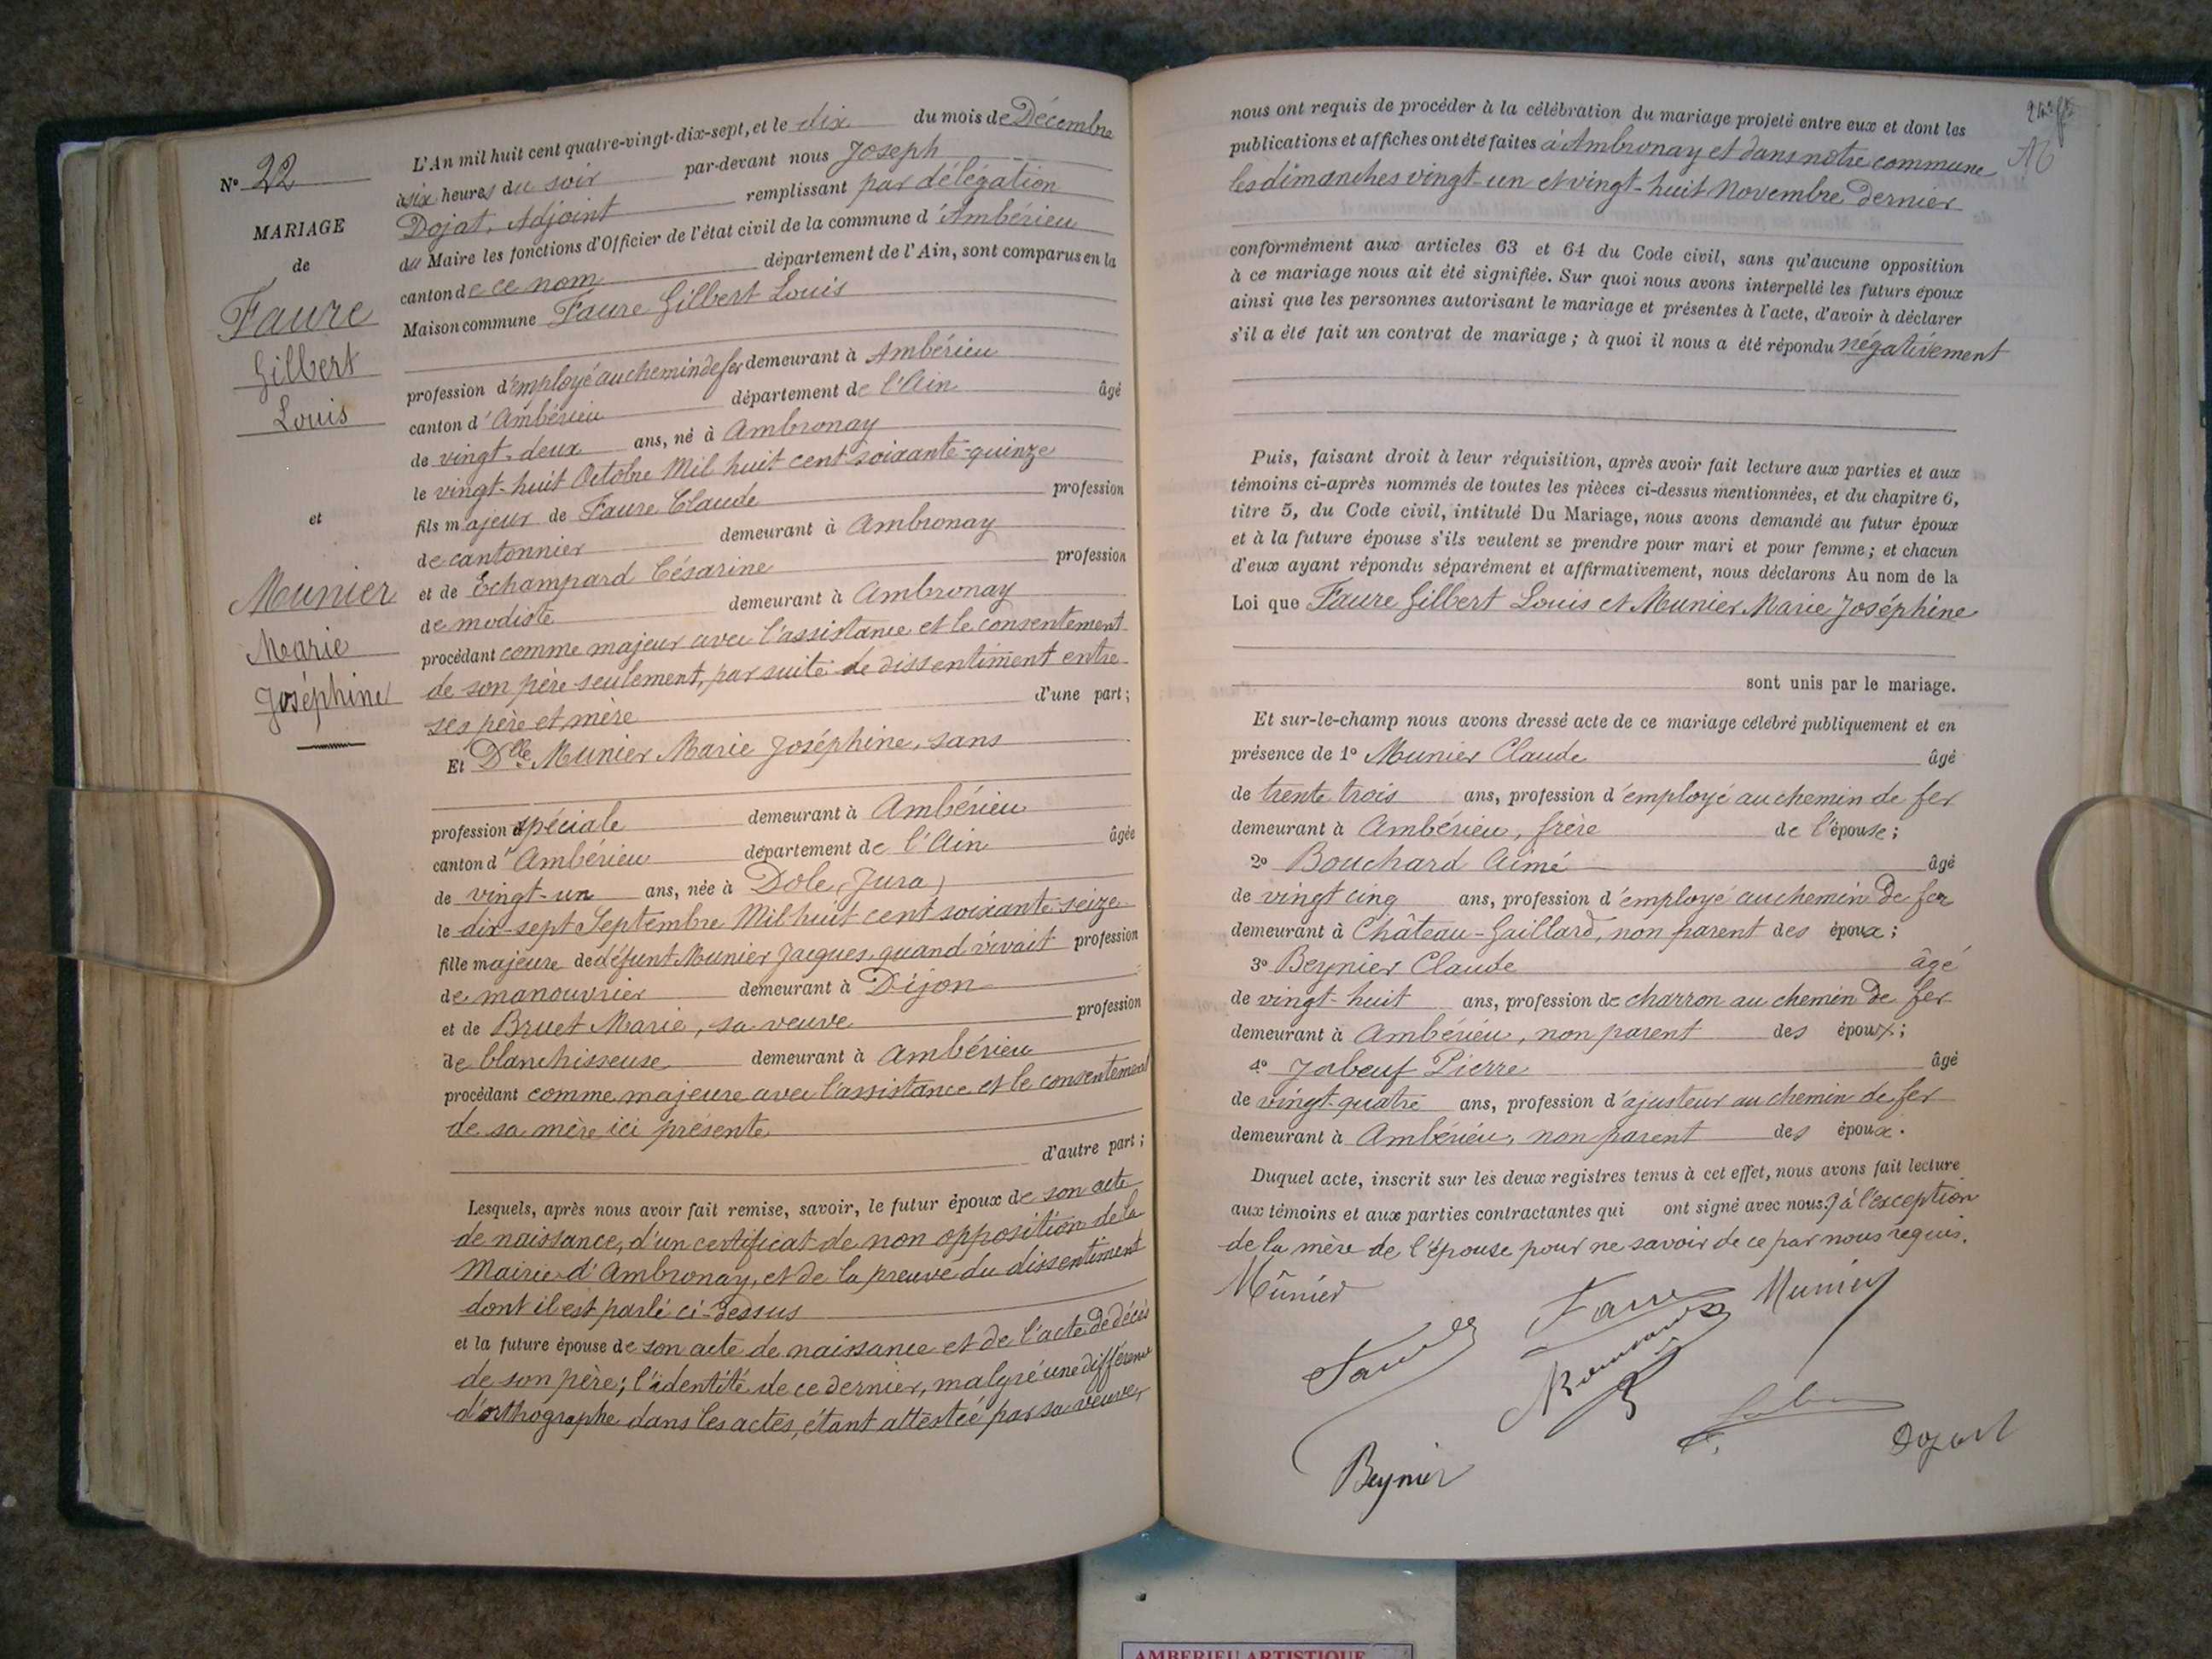 N° 22
MARIAGE
de
Faure
Gilbert
Louis
et
Munier
Marie
Joséphine
L'An mil huit cent quatre-vingt-dix-sept, et le dix du mois de Décembre
à six heures du soir par-devant nous Joseph
Dojat, Adjoint remplissant par délégation
du Maire les fonctions d'Officier de l'état civil de la commune d'Ambérieu
canton de ce nom département de l'Ain, sont comparus en la
Maison commune Faure Gilbert Louis
profession d'employé au chemin de fer demeurant à Ambérieu
canton d'Ambérieu département de l'Ain âgé
de vingt-deux ans, né à Ambronay
le vingt-huit Octobre Mil huit cent soixante-quinze
fils majeur de Faure Claude profession
de cantonnier demeurant à Ambronay
et de Echampard Césarine profession
de modiste demeurant à Ambronay
procédant comme majeur avec l'assistance et le consentement
de son père seulement, par suite de dissentiment entre
ses père et mère d'une part;
Et Dlle Munier Marie Joséphine, sans
profession spéciale demeurant à Ambérieu
canton d'Ambérieu département de l'Ain âgée
de vingt-un ans, née à Dole (Jura)
le dix-sept Septembre Mil huit cent soixante-seize
fille majeure de défunt Munier Jacques, quand vivait profession
de manouvrier demeurant à Dijon
et de Bruet Marie, sa veuve profession
de blanchisseuse demeurant à Ambérieu
procédant comme majeure avec l'assistance et le consentement
de sa mère ici présente
d'autre part;
Lesquels, après nous avoir fait remise, savoir, le futur époux de son acte
de naissance, d'un certificat de non opposition de la
Mairie d'Ambronay, et de la preuve du dissentiment
dont il est parlé ci-dessus
et la future épouse de son acte de naissance et de l'acte de décès
de son père; l'identité de ce dernier, malgré une différence
d'orthographe dans les actes, étant attestée par sa veuve,
nous ont requis de procéder à la célébration du mariage projeté entre eux et dont les
publications et affiches ont été faites à Ambronay et dans notre commune
les dimanches vingt-un et vingt-huit Novembre dernier
conformément aux articles 63 et 64 du Code civil, sans qu'aucune opposition
à ce mariage nous ait été signifiée. Sur quoi nous avons interpellé les futurs époux
ainsi que les personnes autorisant le mariage et présentes à l'acte, d'avoir à déclarer
s'il a été fait un contrat de mariage; à quoi il nous a été répondu négativement
Puis, faisant droit à leur réquisition, après avoir fait lecture aux parties et aux
témoins ci-après nommés de toutes les pièces ci-dessus mentionnées, et du chapitre 6,
titre 5, du Code civil, intitulé Du Mariage, nous avons demandé au futur époux
et à la future épouse s'ils veulent se prendre pour mari et pour femme; et chacun
d'eux ayant répondu séparément et affirmativement, nous déclarons Au nom de la
Loi que Faure Gilbert Louis et Munier Marie Joséphine
sont unis par le mariage.
Et sur-le-champ nous avons dressé acte de ce mariage célébré publiquement et en
présence de 1° Munier Claude âgé
de trente trois ans, profession d'employé au chemin de fer
demeurant à Ambérieu, frère de l'épouse;
2° Bouchard Aimé âgé
de vingt cinq ans, profession d'employé au chemin de fer
demeurant à Château-Gaillard, non parent des époux;
3° Beynier Claude âgé
de vingt-huit ans, profession de charron au chemin de fer
demeurant à Ambérieu, non parent des époux;
4° Jabeuf Pierre âgé
de vingt-quatre ans, profession d'ajusteur au chemin de fer
demeurant à Ambérieu, non parent des époux.
Duquel acte, inscrit sur les deux registres tenus à cet effet, nous avons fait lecture
aux témoins et aux parties contractantes qui ont signé avec nous à l'exception
de la mère de l'épouse pour ne savoir de ce par nous requis.
Münier
Faure
Munier
Faure
Beynier
Dojat
AMBERIEU ARTISTIQUE